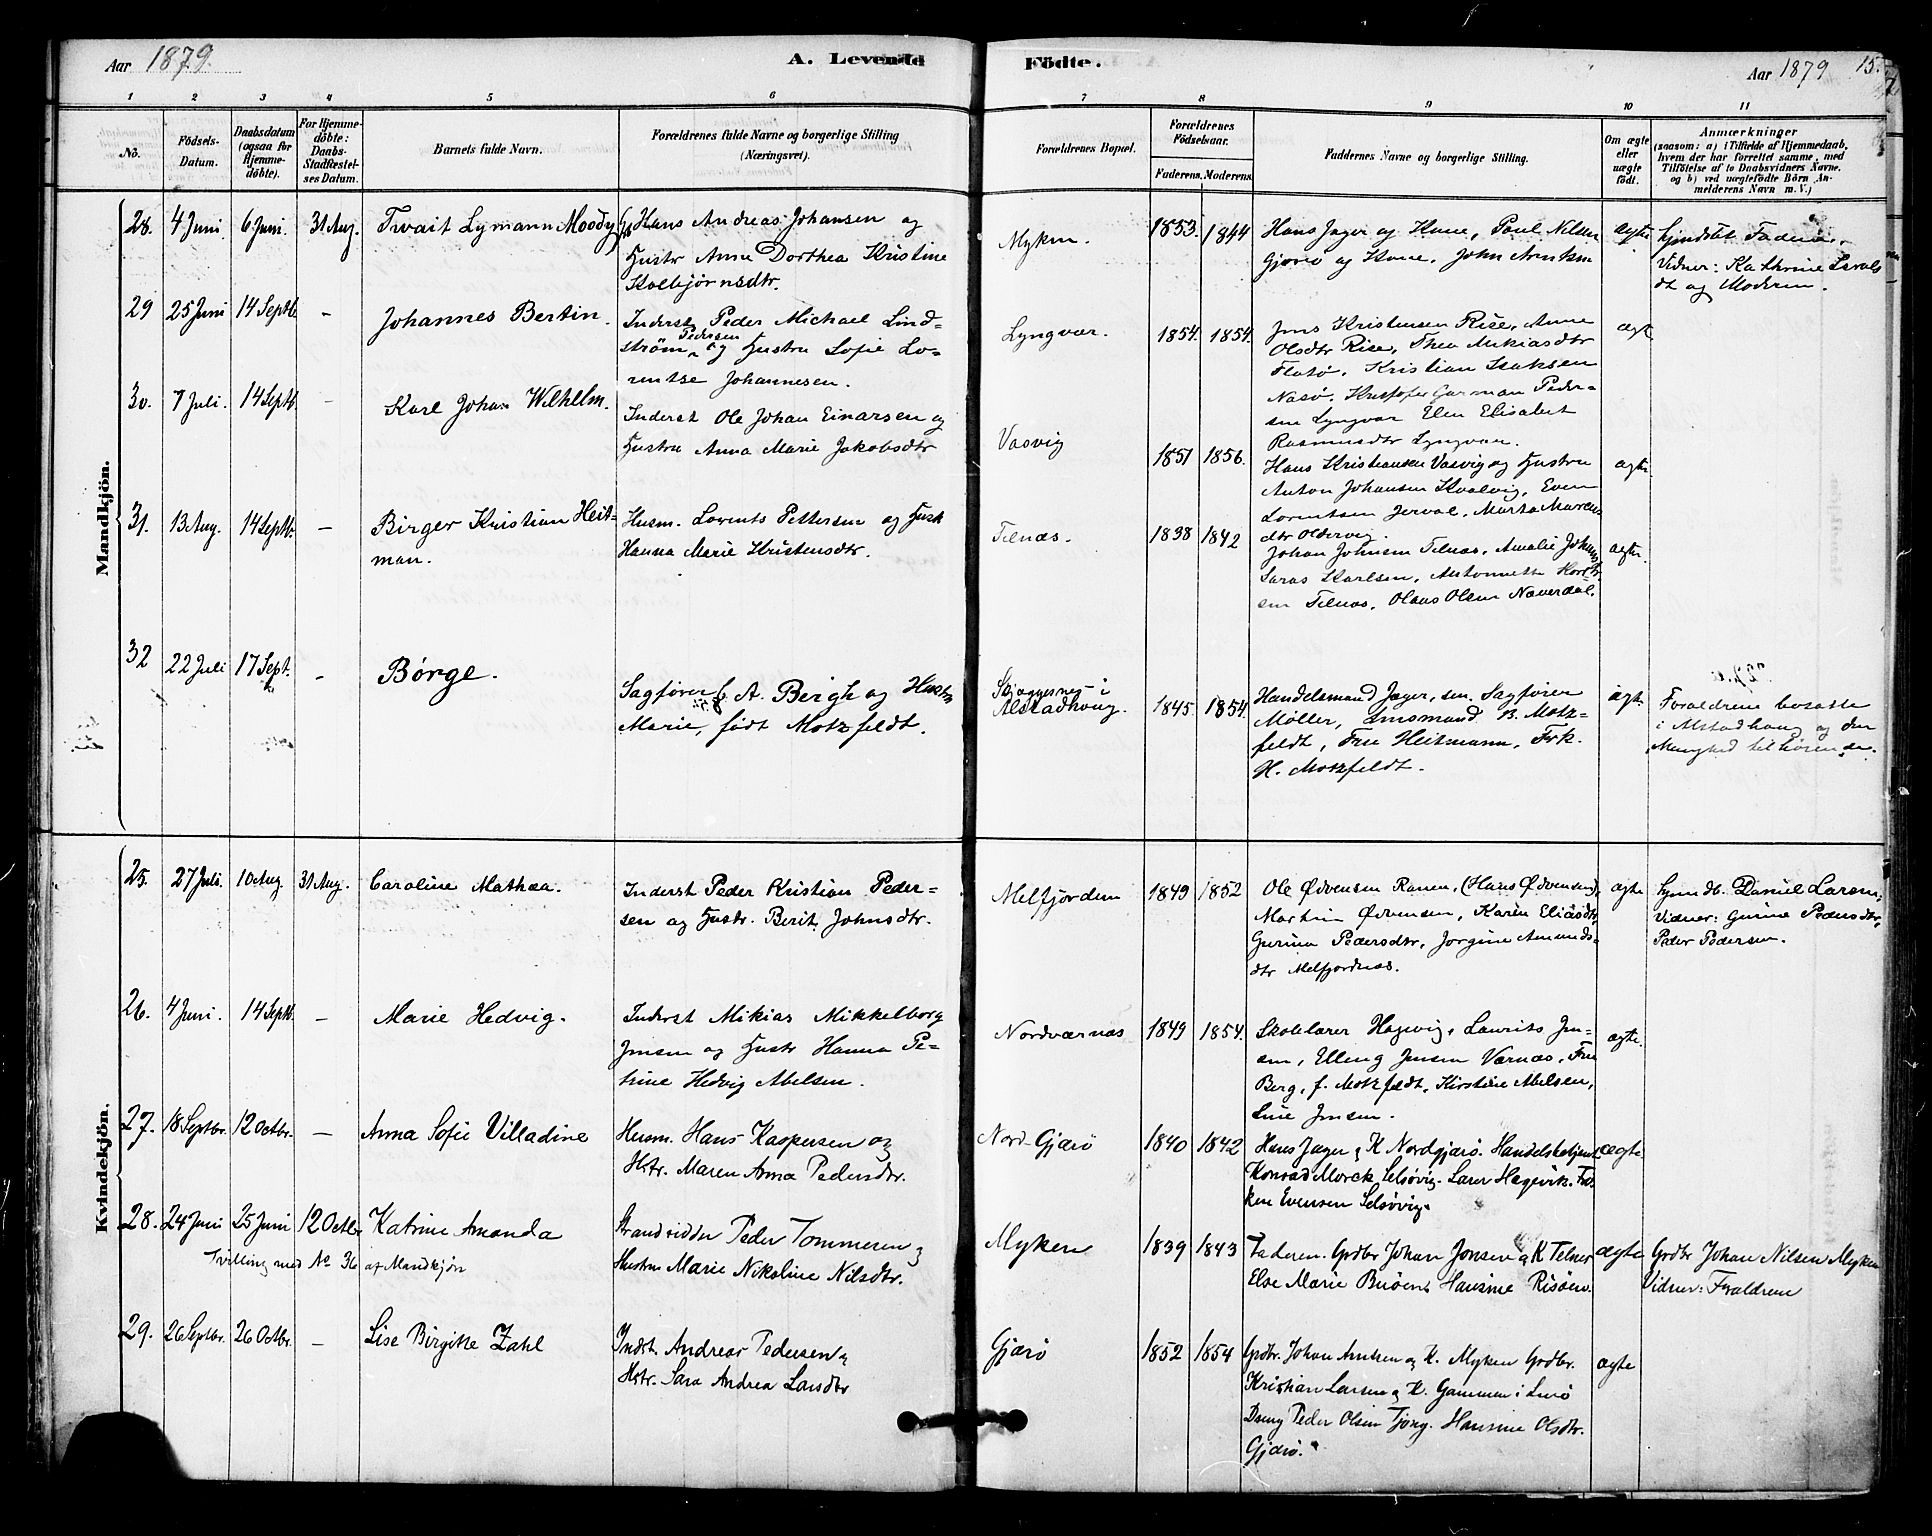 Aar 1879.
A. Levende Födte.
Aar 1879
15.
1 2 3 4 5 6 7 8 9 10 11
No.
Födsels-Datum.
Daabsdatum (ogsaa for Hjemmedöbte).
For Hjemmedöbte: Daabs-Stadfæstelses Datum.
Barnets fulde Navn.
Forældrenes fulde Navne og borgerlige Stilling (Næringsvei).
Forældrenes Bopæl.
Forældrenes Födselsaar.
Faderens. Moderens.
Faddernes Navne og borgerlige Stilling.
Om ægte eller uægte födt.
Anmærkninger
(saasom: a) i Tilfælde af Hjemmedaab, hvem der har forrettet samme, med Tilföielse af to Daabsvidners Navne, og b) ved uægtefödte Börn Anmelderens Navn m. V.)
Mandkjön.
28. 4 Juni 6 Juni. 31 Aug. Tvait Lymann Moody
Hans Andreas Johansen og
Hustr Anne Dorthea Kristine
Kolbjørnsdtr.
Myken. 1853. 1844
Hans Jager og Kone, Paul Nilsen
Gjærø og Kone, John Arntsen
ægte
Vidner: Kathrine
dt og Moderen.
29 25 Juni 14 Septb. - Johannes Bertin.
Inderst Peder Michael Lind-
strøm Pedersen og Hustru Sofie Lo-
rentse Johannesen.
Lyngvær. 1854. 1854.
Jens Kristensen Rise, Anne
Olsdtr Rise, Thea Mikiasdtr
Flatø, Kristian Isaksen
Nasø, Kristofer Garman Peder-
sen Lyngvær Elen Elisabet
Rasmusdtr Lyngvær.
ægt
30. 7 Juli. 14 Septb. - Karl Johan Wilhelm.
Inderst Ole Johan Einarsen og
Hustru Anna Marie Jakobsdtr
Vasvig 1851 1856.
Hans Kristiansen Vasvig og Hustru
Anton Johansen Kvalvig, Even
Lorentsen Jerval, Marta
dtr Oldervig.
ægte
31. 13 Aug. 14 Septb. - Birger Kristian Heit-
man.
Husm. Lorents Pettersen og Hust
Hanna Marie Kristensdtr.
Telnæs. 1838 1842
Johan Johnsen Telnæs, Amalie
Karlsen, Antonette
sen Telnæs, Olaus Olsen Naverdal.
ægte
32 22 Juli 17 Sept. - Børge.
Sagfører C. A. Bergh og Hustr
Marie, født Motzfeldt.
Skjeggesnes i
Alstadhoug. 1845. 1854.
Handelsmand Jæger, sen. Sagfører
Møller, Lensmand B. Motz-
feldt, Fru Heitmann, Frk.
H. Motzfeldt.
ægt
Forældrene bosatte
i Alstadhoug og den
Menighed tilhørende.
Kvindekjön.
25. 27 Juli. 10 Aug. 31 Aug. Caroline Mathea.
Inderst Peder Kristian Peder-
sen og Hustr. Berit Johnsdtr.
Melfjorden 1849 1852
Ole Ødvensen Ranen, (Hans Ødvensen)
Martin Ødvensen, Karen Eliasdtr,
Gurina Pedersdtr, Jorgine Amunds-
dtr Melfjordnæs.
ægte
Hjmdb. Daniel Larsen,
Vidner: Gurine Pedersdtr,
Peder Pedersen.
26. 4 Juni. 14 Septb. - Marie Hedvig.
Inderst Mikias Mikkelborg
Jensen og Hustr Hanna Pe-
trine Hedvig Abelsen.
Nordværnæs 1849 1854.
Skolelærer Hagevig, Laurits Jen-
sen, Elling Jensen Værnæs, Fru
Berg, f. Motzfeldt, Kirstine Abelsen,
Line Jensen.
ægte.
27. 18 Septbr. 12 Octbr. - Anna Sofie Villadine
Husm. Hans Kaspersen og
Hstr. Maren Anna Pedersdtr.
Nord-Gjærø 1840 1842
Hans Jæger & K Nordgjærø. Handelsbetjent
Konrad Morck Selsøvig. Lærer Hagevik. Frø-
ken Evensen Selsøvig.
ægte
28. 24 Juni 25 Juni 12 Octbr Katrine Amanda
Tvilling med No 36 af Mandkjøn
Strandsidder Peder Tommesen og
Hustru Marie Nikoline Nilsdtr.
Myken 1839 1843
Faderen. Grdbr Johan Jonsen & K Telnes
Else Marie Buøen, Hansine Risøen.
ægte
Grdbr Johan Nilsen Myken
Vidner: Forældrene
29. 26 Septbr. 26 Octbr. - Lise Birgitte Zahl
Indst. Andreas Pedersen &
Hstr. Sara Andrea Larsdtr
Gjærø 1852 1854
Grdbr. Johan Arntsen og K. Myken Grdbr.
Kristian Larsen & K. Gammen i Lurø
Dreng Peder Olsen Tjong. Hansine Olsdtr.
Gjærø.
ægte